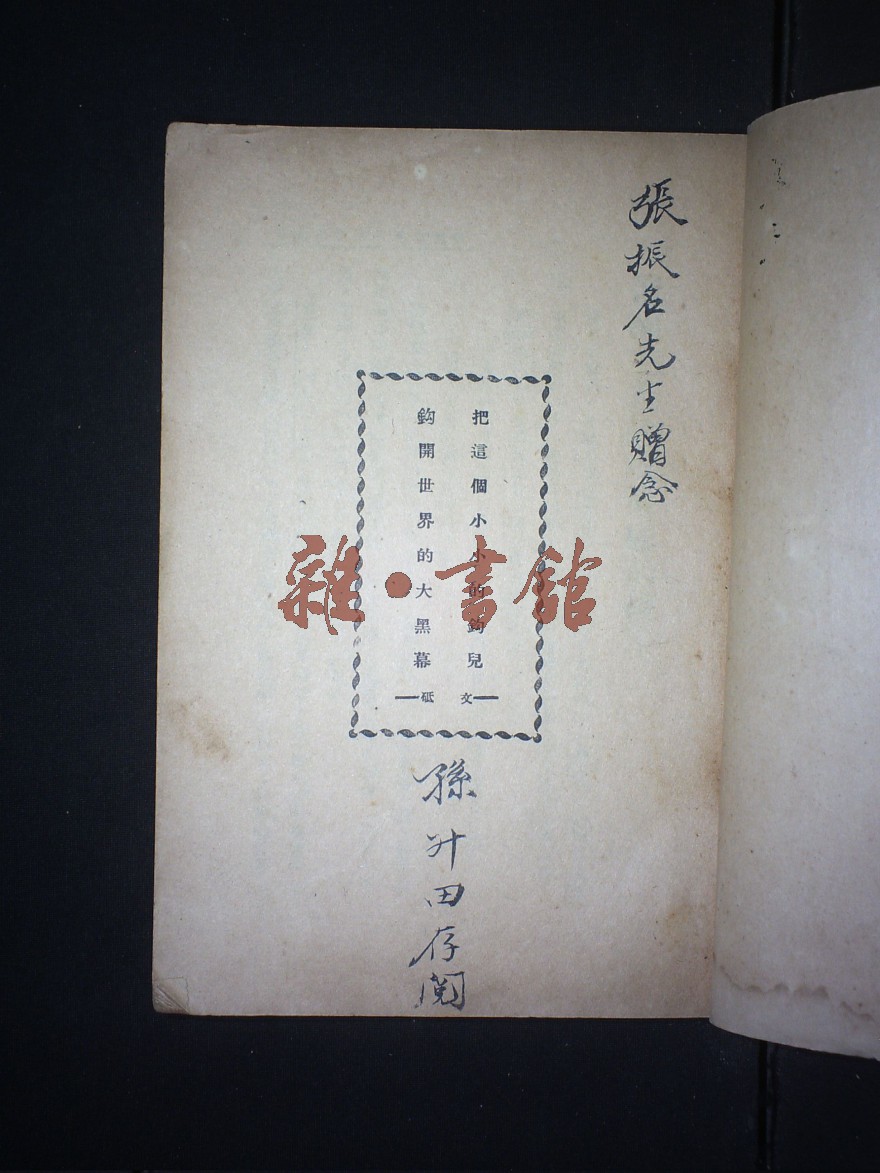 張振名先生贈念
把這個小小的鈎兒
鈎開世界的大黑幕
——文砥——
孫升田存閱
雜·書館